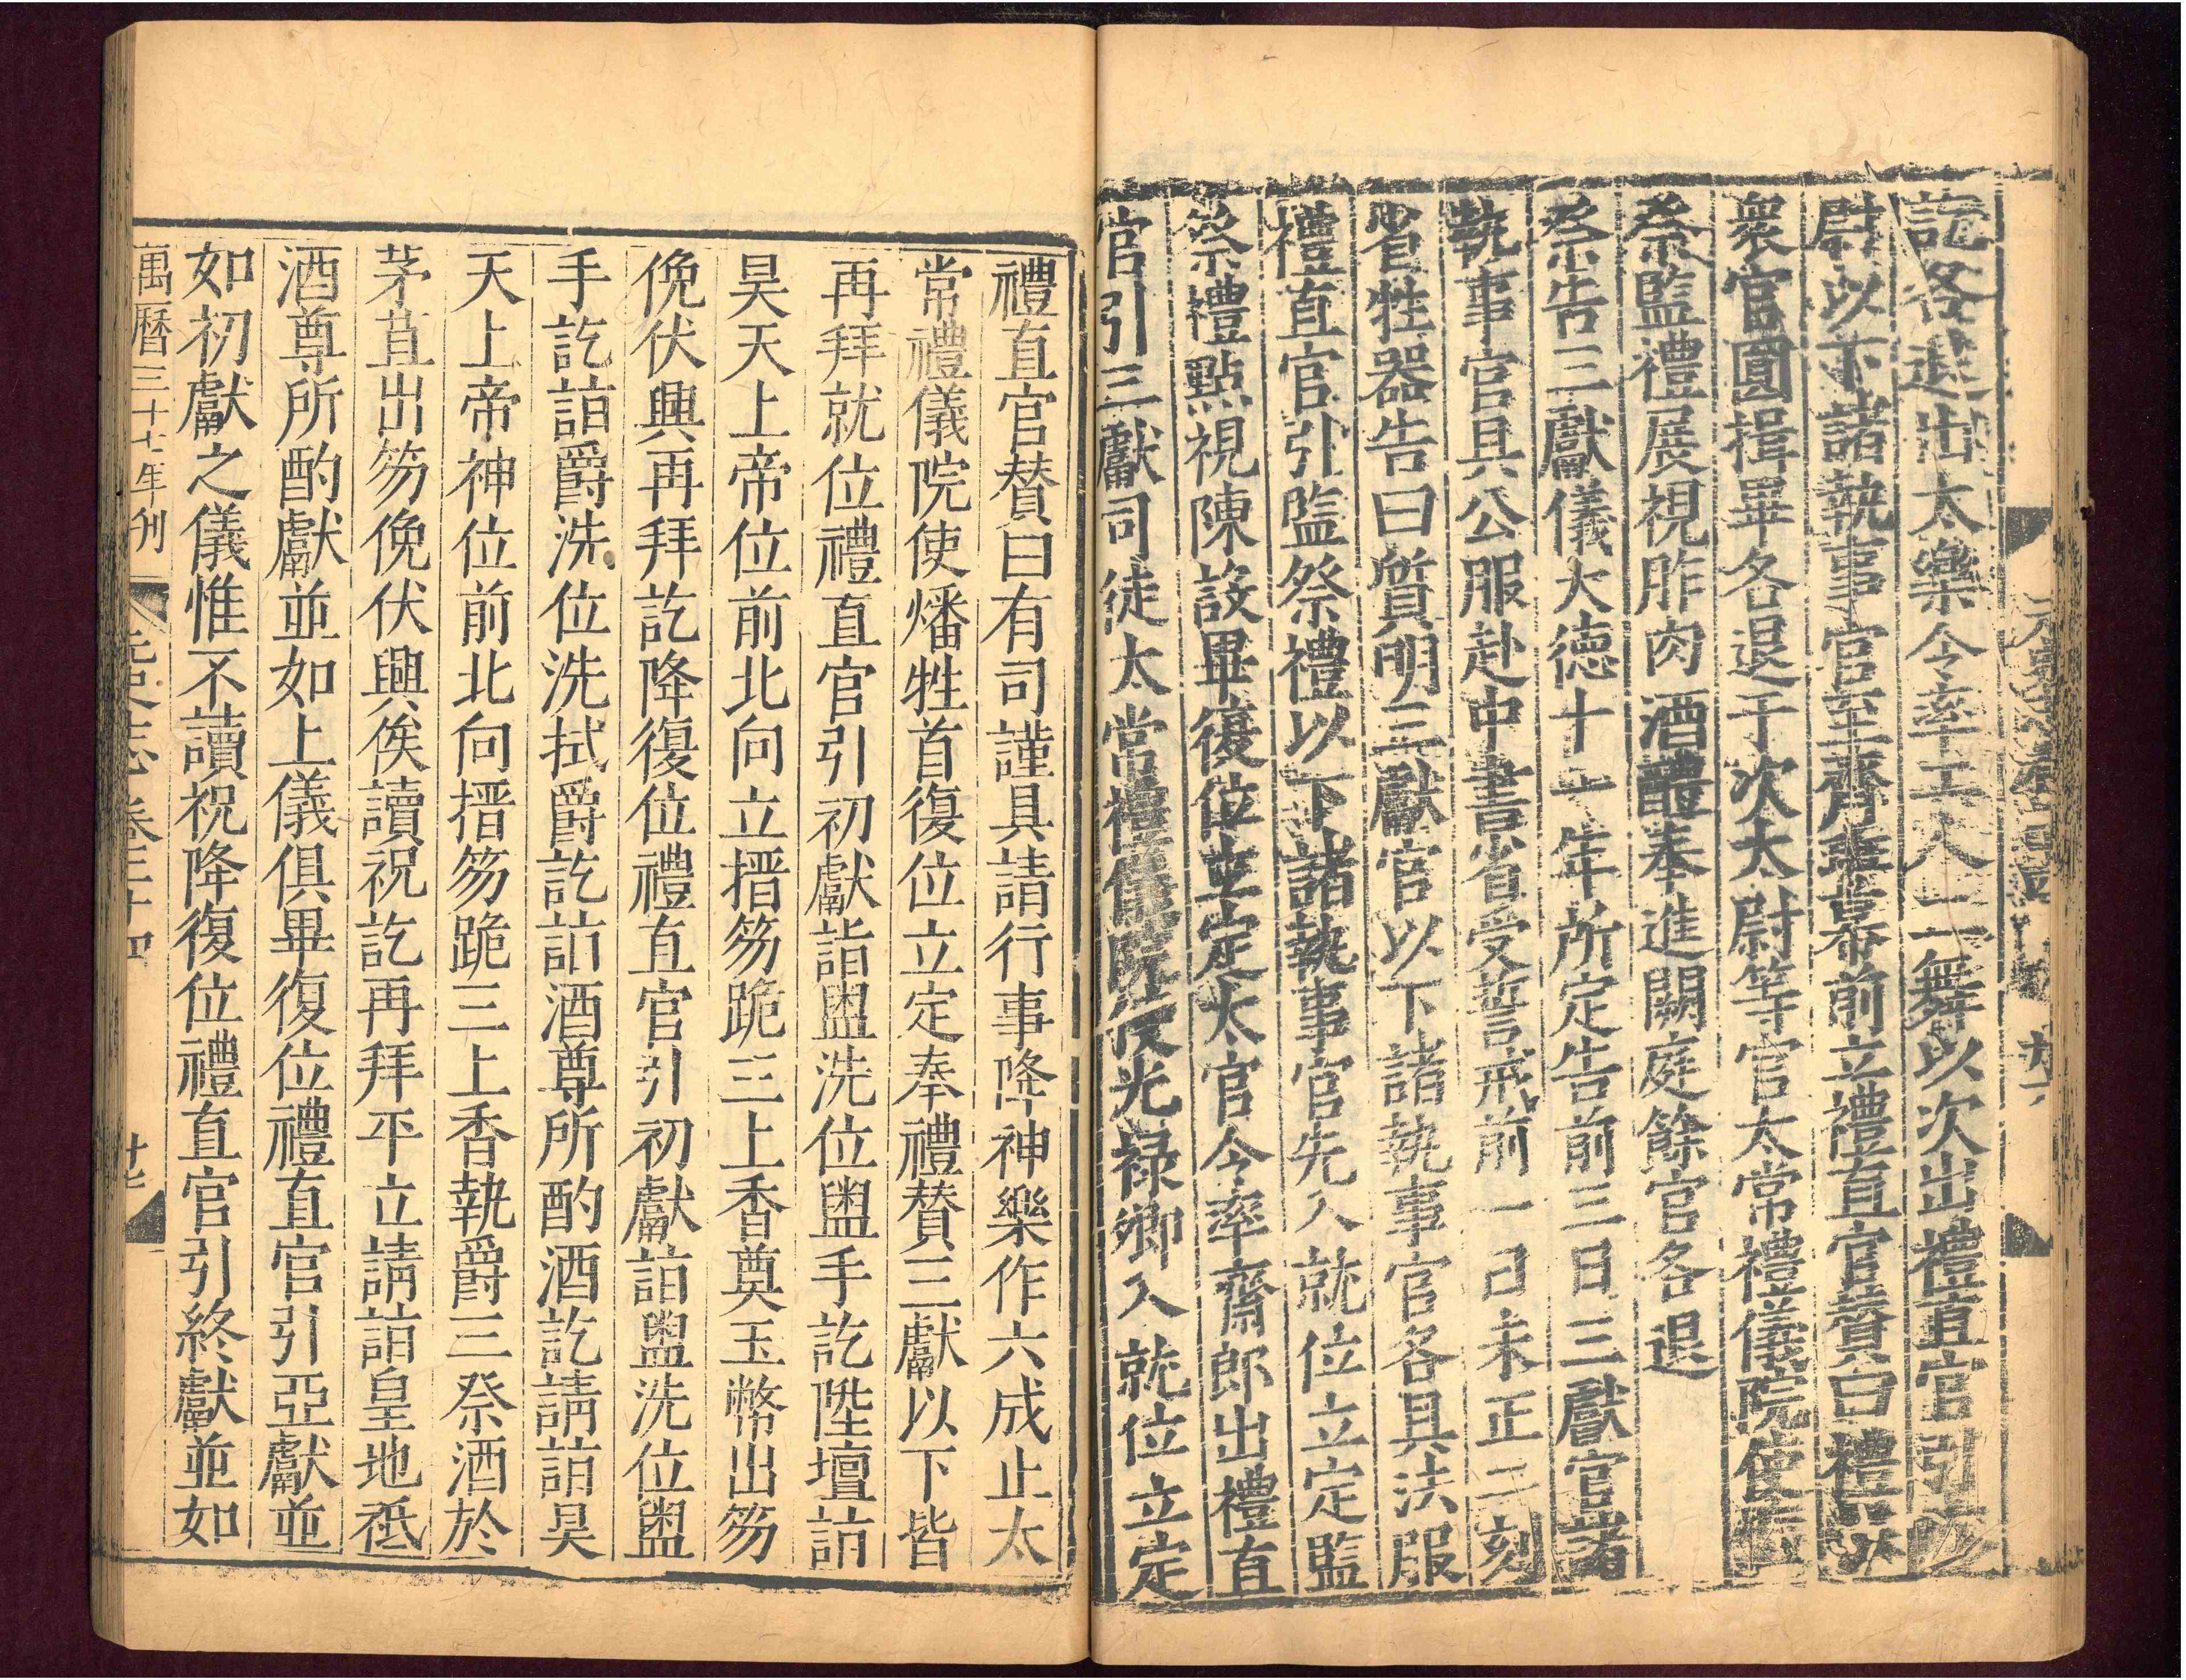 訖各退出太樂令率工人二舞以次出禮直官引
尉以下諸執事官至齊班幕前立禮直官贊曰禮
衆官圓揖畢各退于次太尉等官太常禮儀院使
祭監禮展視胙肉酒醴奉進闕庭餘官各退
祭告三獻儀大德十一年所定告前三日三獻官諸
執事官具公服赴中書省受誓戒前一日未正二刻
省牲器告日質明三獻官以下諸執事官各具法服
禮直官引監祭禮以下諸執事官先入就位立定監
祭禮點視陳設畢復位立定太官令率齋郎出禮直
官引三獻司徒太常禮儀院使光祿卿入就位立定
禮直官贊曰有司謹具請行事降神樂作六成止太
常禮儀院使燔牲首復位立定奉禮贊三獻以下皆
再拜就位禮直官引初獻詣盥洗位盥手訖陞壇詣
昊天上帝位前北向立搢笏跪三上香奠玉幣出笏
俛伏興再拜訖降復位禮直官引初獻詣盥洗位盥
手訖詣爵洗位洗拭爵訖詣酒尊所酌酒訖請詣昊
天上帝神位前北向搢笏跪三上香執爵三祭酒於
茅苴出笏俛伏興俟讀祝訖再拜平立請詣皇地祗
酒尊所酌獻並如上儀俱畢復位禮直官引亞獻並
如初獻之儀惟不讀祝降復位禮直官引終獻並如
萬曆三十七年刊 元史志卷二十四